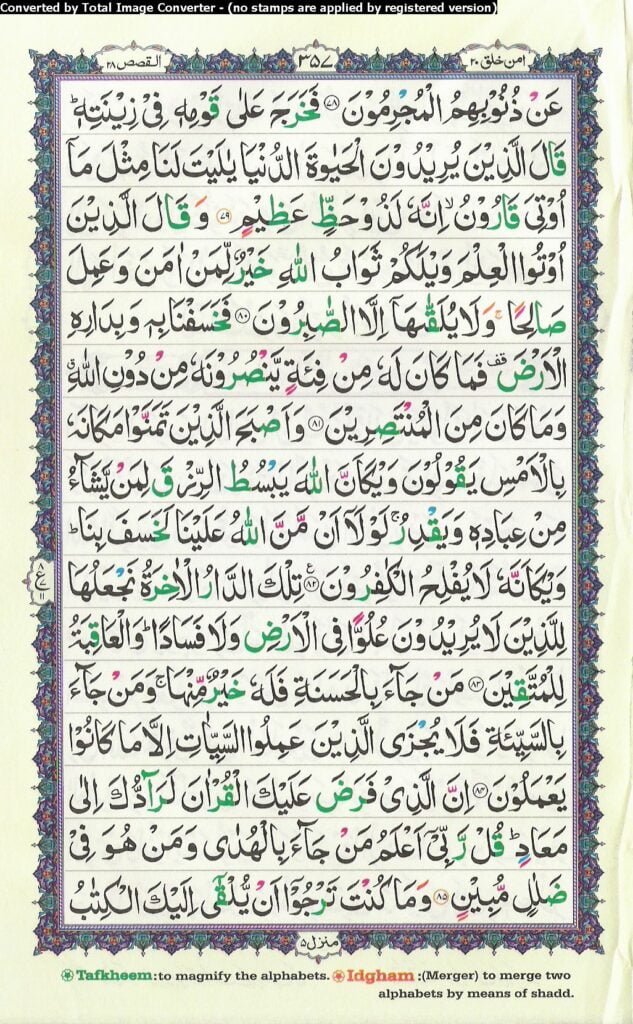 Converted by Total Image Converter - (no stamps are applied by registered version)
امن خلق ۲۰
۳۵۷
القصص ۲۸
عَنْ ذُنُوْبِهِمُ الْمُجْرِمُوْنَ ۷۸ فَخَرَجَ عَلٰى قَوْمِهٖ فِىْ زِيْنَتِهٖ ؕ
قَالَ الَّذِيْنَ يُرِيْدُوْنَ الْحَيٰوةَ الدُّنْيَا يٰلَيْتَ لَنَا مِثْلَ مَاۤ
اُوْتِىَ قَارُوْنُ ۙ اِنَّهٗ لَذُوْ حَظٍّ عَظِيْمٍ ۷۹ وَ قَالَ الَّذِيْنَ
اُوْتُوا الْعِلْمَ وَيْلَكُمْ ثَوَابُ اللّٰهِ خَيْرٌ لِّمَنْ اٰمَنَ وَ عَمِلَ
صَالِحًا ۚ وَلَا يُلَقّٰىهَاۤ اِلَّا الصّٰبِرُوْنَ ۸۰ فَخَسَفْنَا بِهٖ وَ بِدَارِهِ
الْاَرْضَ قف فَمَا كَانَ لَهٗ مِنْ فِئَةٍ يَّنْصُرُوْنَهٗ مِنْ دُوْنِ اللّٰهِ ق
وَمَا كَانَ مِنَ الْمُنْتَصِرِيْنَ ۸۱ وَاَصْبَحَ الَّذِيْنَ تَمَنَّوْا مَكَانَهٗ
بِالْاَمْسِ يَقُوْلُوْنَ وَيْكَاَنَّ اللّٰهَ يَبْسُطُ الرِّزْقَ لِمَنْ يَّشَآءُ
مِنْ عِبَادِهٖ وَيَقْدِرُ ۚ لَوْلَاۤ اَنْ مَّنَّ اللّٰهُ عَلَيْنَا لَخَسَفَ بِنَا ؕ
وَيْكَاَنَّهٗ لَا يُفْلِحُ الْكٰفِرُوْنَ ۸۲ ع تِلْكَ الدَّارُ الْاٰخِرَةُ نَجْعَلُهَا
لِلَّذِيْنَ لَا يُرِيْدُوْنَ عُلُوًّا فِى الْاَرْضِ وَلَا فَسَادًا ؕ وَالْعَاقِبَةُ
لِلْمُتَّقِيْنَ ۸۳ مَنْ جَآءَ بِالْحَسَنَةِ فَلَهٗ خَيْرٌ مِّنْهَا ۚ وَمَنْ جَآءَ
بِالسَّيِّئَةِ فَلَا يُجْزَى الَّذِيْنَ عَمِلُوا السَّيِّاٰتِ اِلَّا مَا كَانُوْا
يَعْمَلُوْنَ ۸۴ اِنَّ الَّذِىْ فَرَضَ عَلَيْكَ الْقُرْاٰنَ لَرَآدُّكَ اِلٰى
مَعَادٍ ؕ قُلْ رَّبِّىْۤ اَعْلَمُ مَنْ جَآءَ بِالْهُدٰى وَمَنْ هُوَ فِىْ
ضَلٰلٍ مُّبِيْنٍ ۸۵ وَمَا كُنْتَ تَرْجُوْۤا اَنْ يُّلْقٰٓى اِلَيْكَ الْكِتٰبُ
۸
ع
۱۱
منزل ۵
Tafkheem:to magnify the alphabets. Idgham :(Merger) to merge two
alphabets by means of shadd.